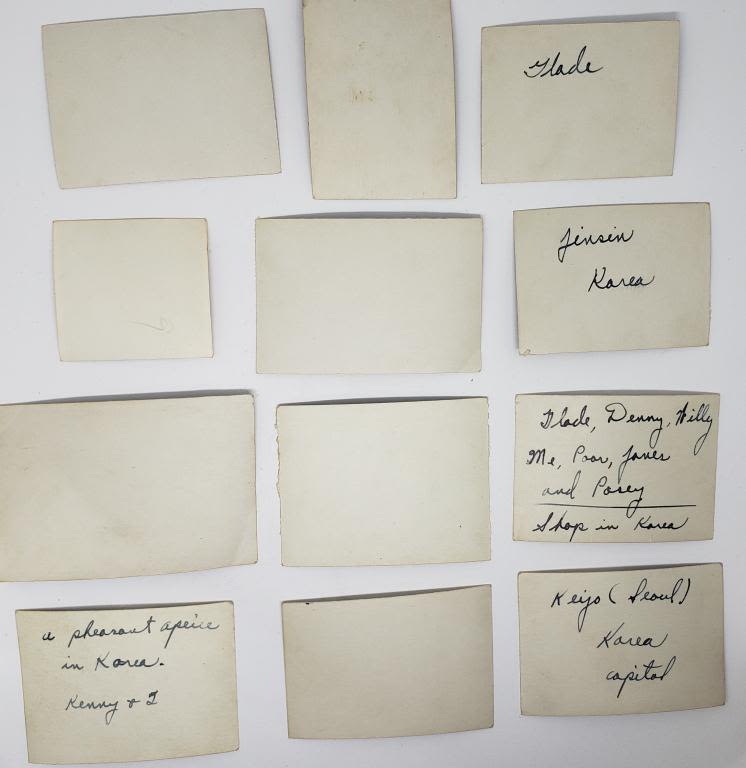 Flade
Jinsin
Korea
Flade, Denny, Willy
Me, Poor, Jones
and Posey
Shop in Korea
a pheasant apeice
in Korea.
Kenny & I
Keijo (Seoul)
Korea
capital